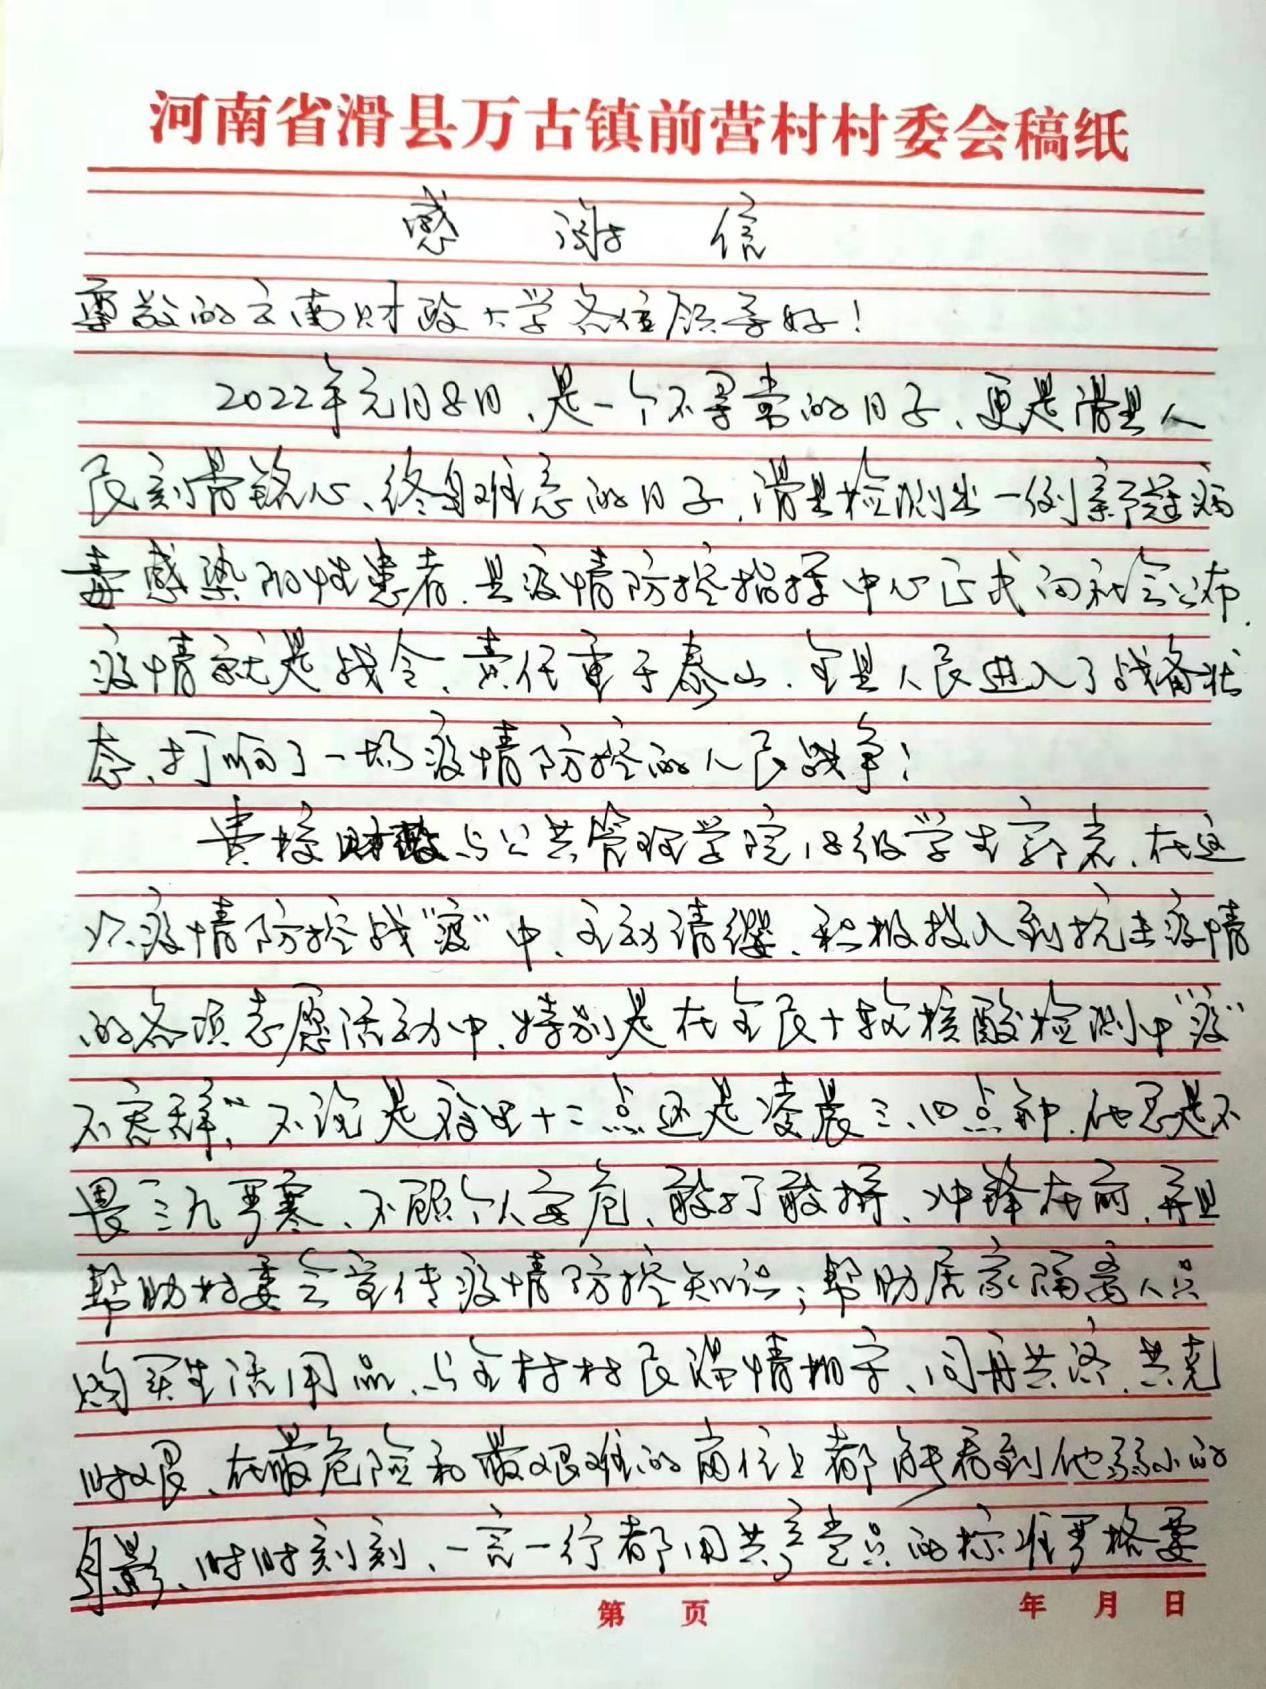 河南省滑县万古镇前营村村委会稿纸
感谢信
尊敬的云南财政大学各位领导好！
2022年元月8日、是一个不寻常的日子、更是滑县人
民刻骨铭心、终身难忘的日子、滑县检测出一例新冠病
毒感染阳性患者.县疫情防控指挥中心正式向社会公布.
疫情就是战令、责任重于泰山、全县人民进入了战备状
态、打响了一场疫情防控的人民战争！
贵校财政与公共管理学院18级学生郭、在这
次疫情防控战“疫”中、主动请缨、积极投入到抗击疫情
的各项志愿活动中、特别是在全民十轮核酸检测中“疫”
不容辞”，不论是夜里十二点还是凌晨三、四点钟.他总是不
畏三九严寒、不顾个人安危、敢打敢拼、冲锋在前、并且
帮助村委会宣传疫情防控知识；帮助居家隔离人员
购买生活用品、与全村村民温情相守、同舟共济、共克
时艰、在最危险和最艰难的岗位上都能看到他弱小的
身影、时时刻刻、一言一行都用共产党员的标准严格要
第 页 年 月 日